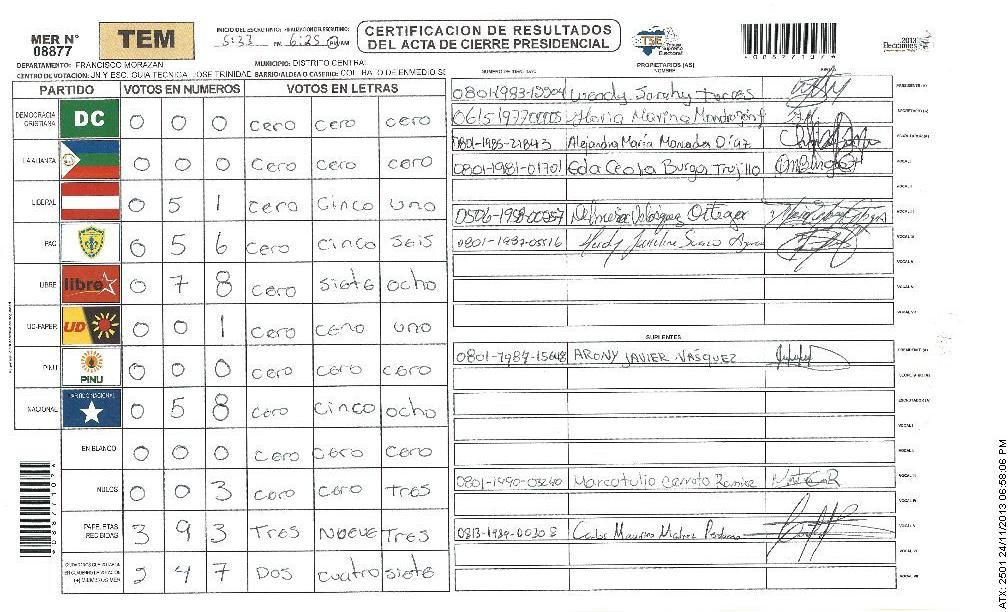 MER N° 08877
TEM
INICIO DEL ESCRUTINIO: FINALIZACION DE ESCRUTINIO:
5:33 PM 6:25 PM/AM
CERTIFICACION DE RESULTADOS
DEL ACTA DE CIERRE PRESIDENCIAL
TSE
2013
Elecciones
DEPARTAMENTO: FRANCISCO MORAZAN MUNICIPIO: DISTRITO CENTRAL
CENTRO DE VOTACION: JN Y ESC. GUIA TECNICA, JOSE TRINIDAD BARRIO/ALDEA O CASERIO: COL. RATO DE ENMEDIO SE
PROPIETARIOS (AS)
NOMBRE
PARTIDO VOTOS EN NUMEROS VOTOS EN LETRAS
DEMOCRACIA CRISTIANA DC 0 0 0 cero cero cero
LA ALIANZA 0 0 0 cero cero cero
LIBERAL 0 5 1 cero cinco uno
PAC 0 5 6 cero cinco seis
LIBRE libre 0 7 8 cero siete ocho
UD-FAPER UD 0 0 1 cero cero uno
PINU PINU 0 0 0 cero cero cero
NACIONAL PARTIDO NACIONAL 0 5 8 cero cinco ocho
EN BLANCO 0 0 0 cero cero cero
NULOS 0 0 3 cero cero Tres
PAPELETAS RECIBIDAS 3 9 3 Tres Nueve Tres
2 4 7 DOS cuatro siete
Wendy Sarahy Torres PRESIDENTE (A)
Maria Marina SECRETARIO (A)
0801-1985-21843 Alejandra María Díaz ESCRUTADOR (A)
0801-1981-01701 Burgos Trujillo VOCAL I
VOCAL II
Ortega VOCAL III
0801-1987-05516 VOCAL IV
VOCAL V
VOCAL VI
VOCAL VII
SUPLENTES
ARONY JAVIER VASQUEZ PRESIDENTE (A)
SECRETARIO (A)
ESCRUTADOR (A)
VOCAL I
VOCAL II
0801-1990-03240 Marcotulio Cerrato Ramirez VOCAL III
VOCAL IV
Carlos Mauricio VOCAL V
VOCAL VI
VOCAL VII
ATX: 2501 24/11/2013 06:58:06 PM